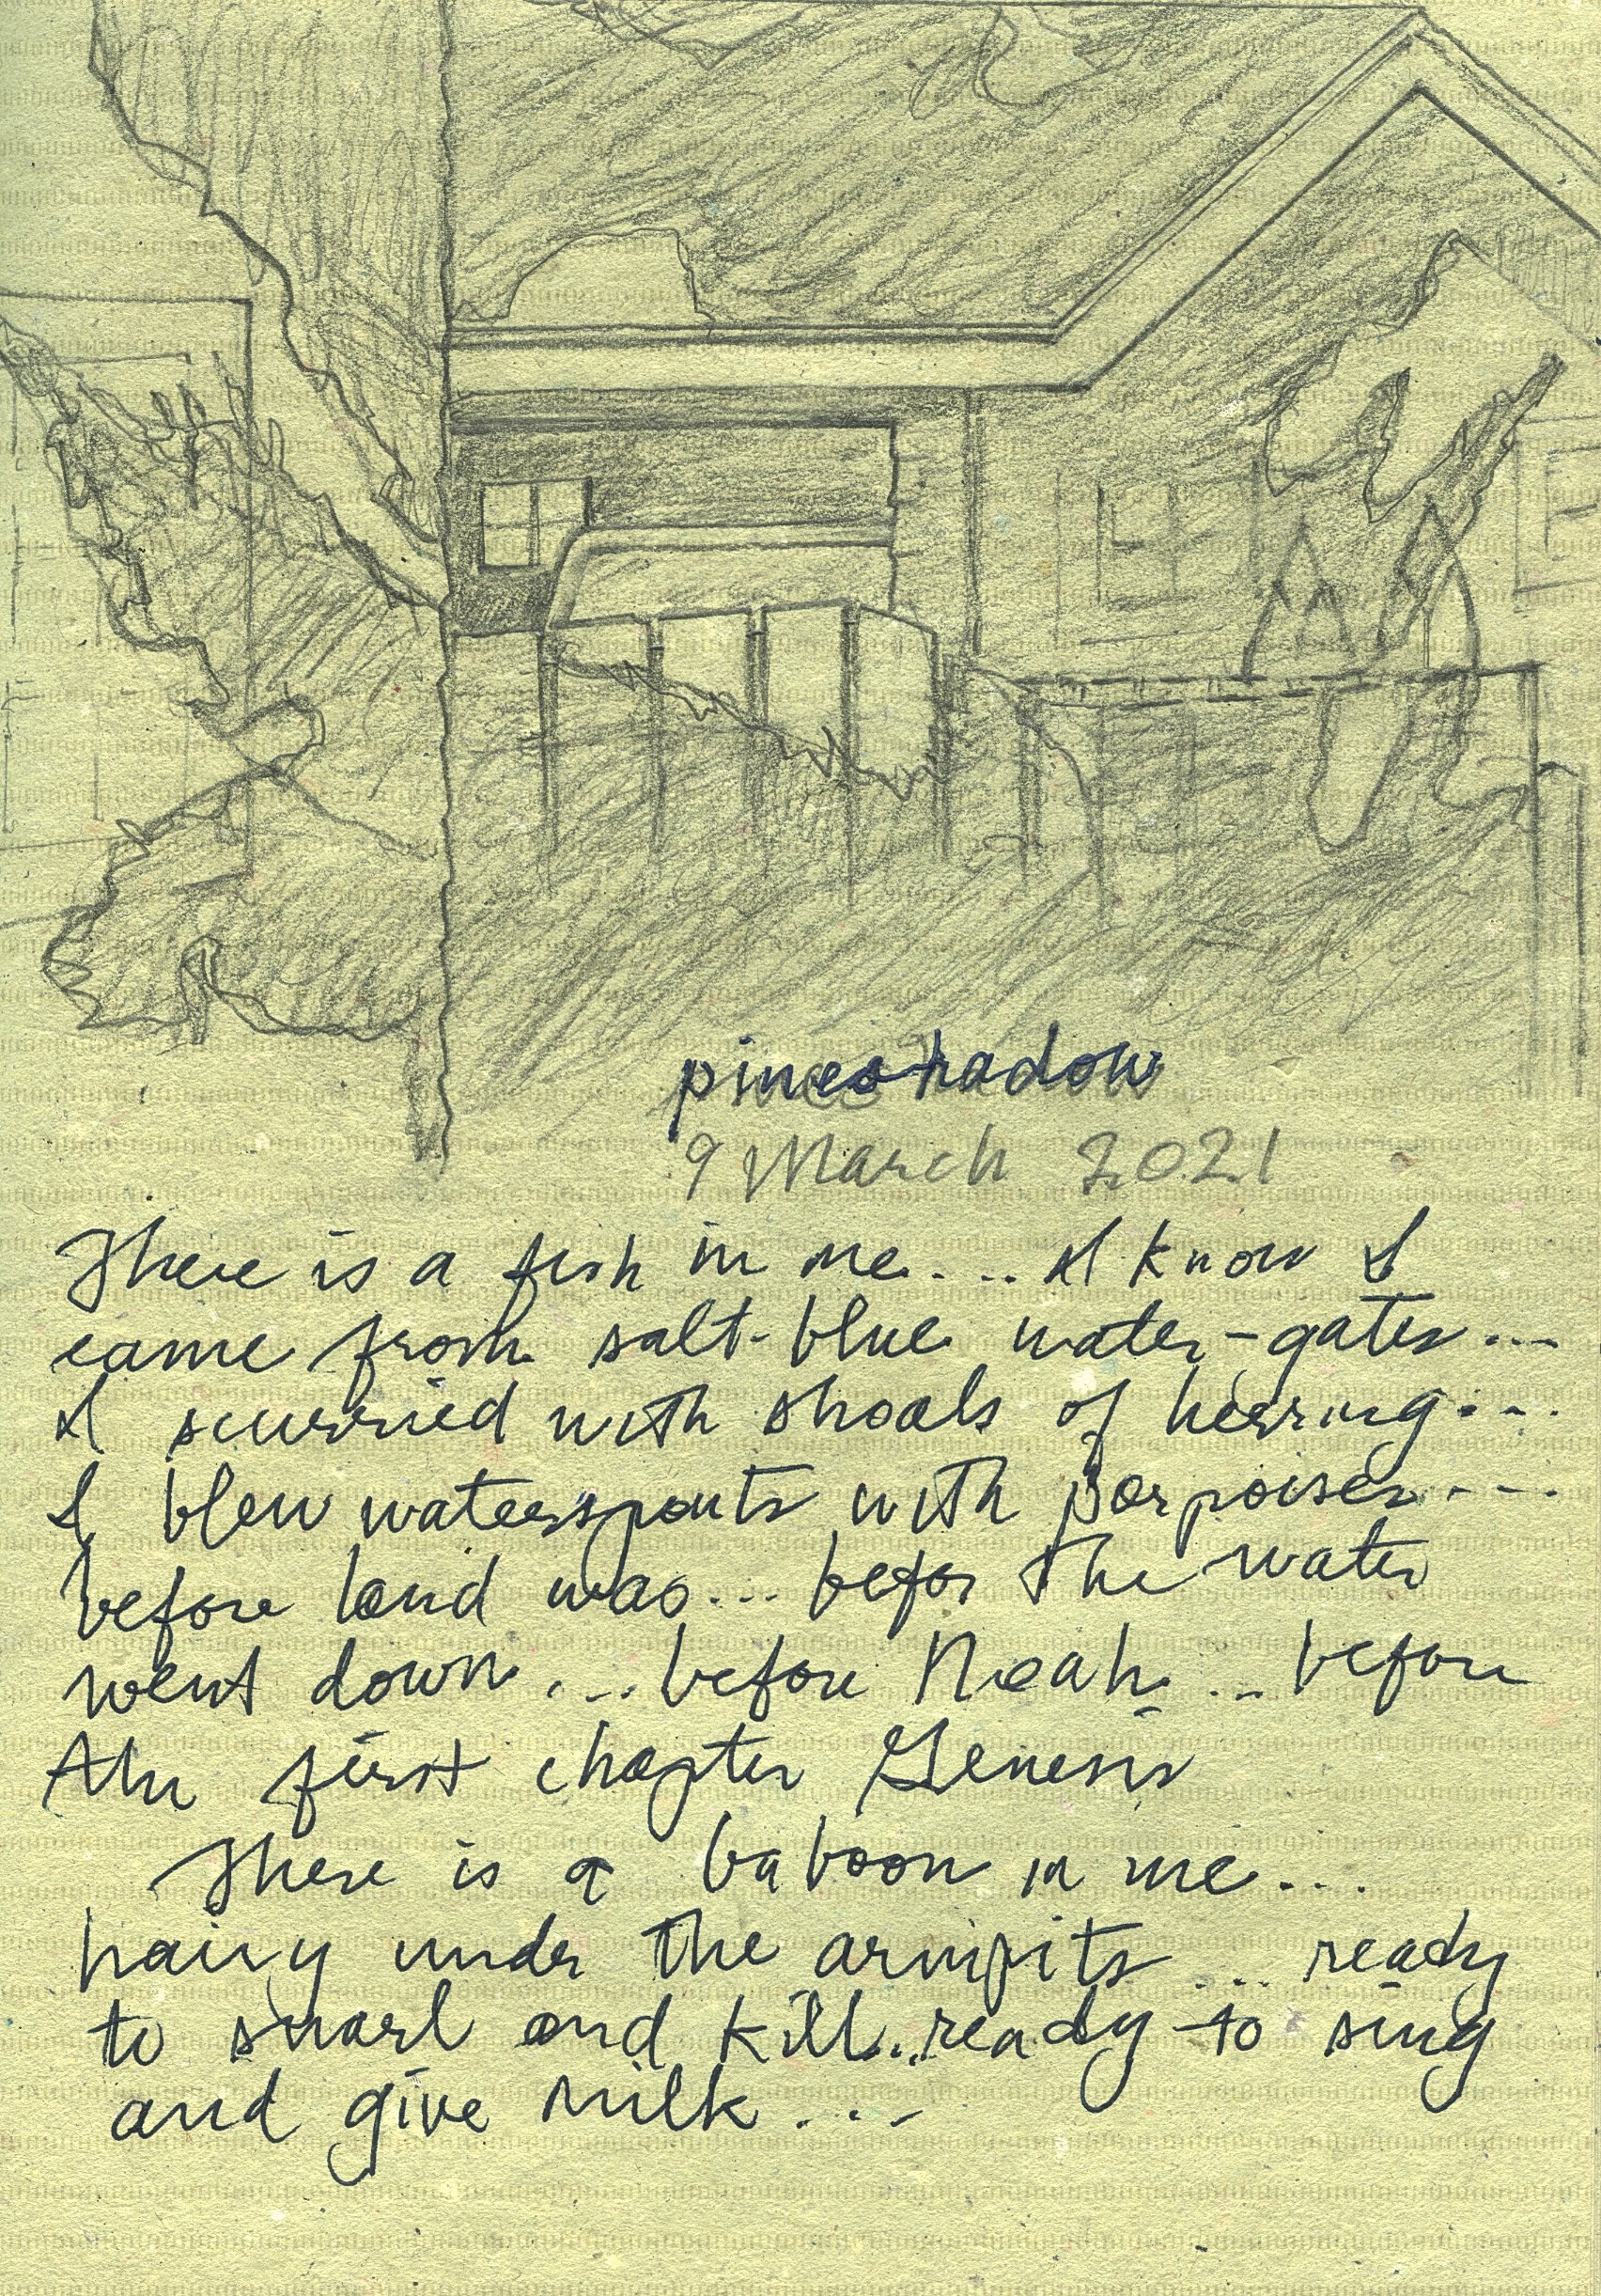 pineshadow
9 March 2021
There is a fish in me.... I know I
came from salt-blue water-gates...
I scurried with shoals of herring...
I blew waterspouts with porpoises....
before land was.... befor the water
went down.... before Noah... before
the first chapter Genesis
There is a baboon in me....
hairy under the armpits.... ready
to snarl and kill...ready to sing
and give milk....